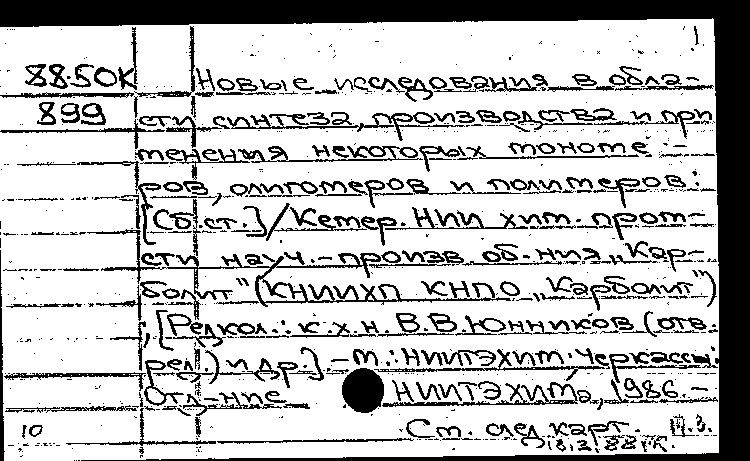 1
88.50К Новые исследования в обла-
899 сти синтеза, производства и при
менения некоторых мономе-
ров, олигомеров и полимеров:
[Сб. ст.] / Кемер. НИИ хим. пром-
сти науч.-произв. об-ния „Кар-
болит" (КНИИХП КНПО „Карболит")
; [Редкол.: к. х. н. В. В. Юнников (отв.
ред.) и др.] - М.: НИИТЭХИМ. Черкассы:
Отд-ние НИИТЭХИМа, 1986.-
10 См. след. карт.